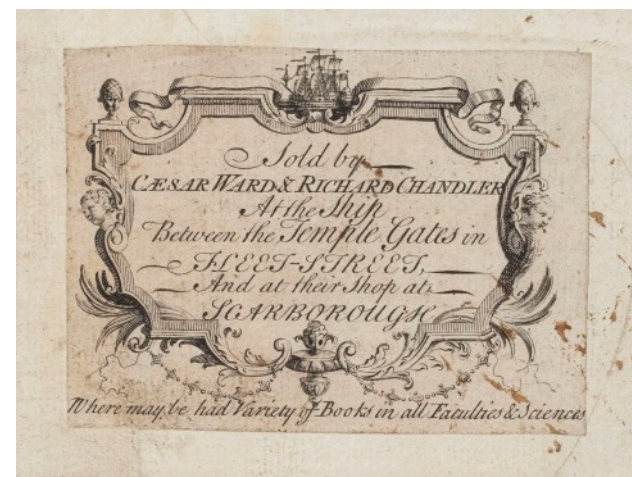 Sold by
CÆSAR WARD & RICHARD CHANDLER
At the Ship
Between the Temple Gates in
FLEET-STREET,
And at their Shop at
SCARBOROUGH
Where may be had Variety of Books in all Faculties & Sciences